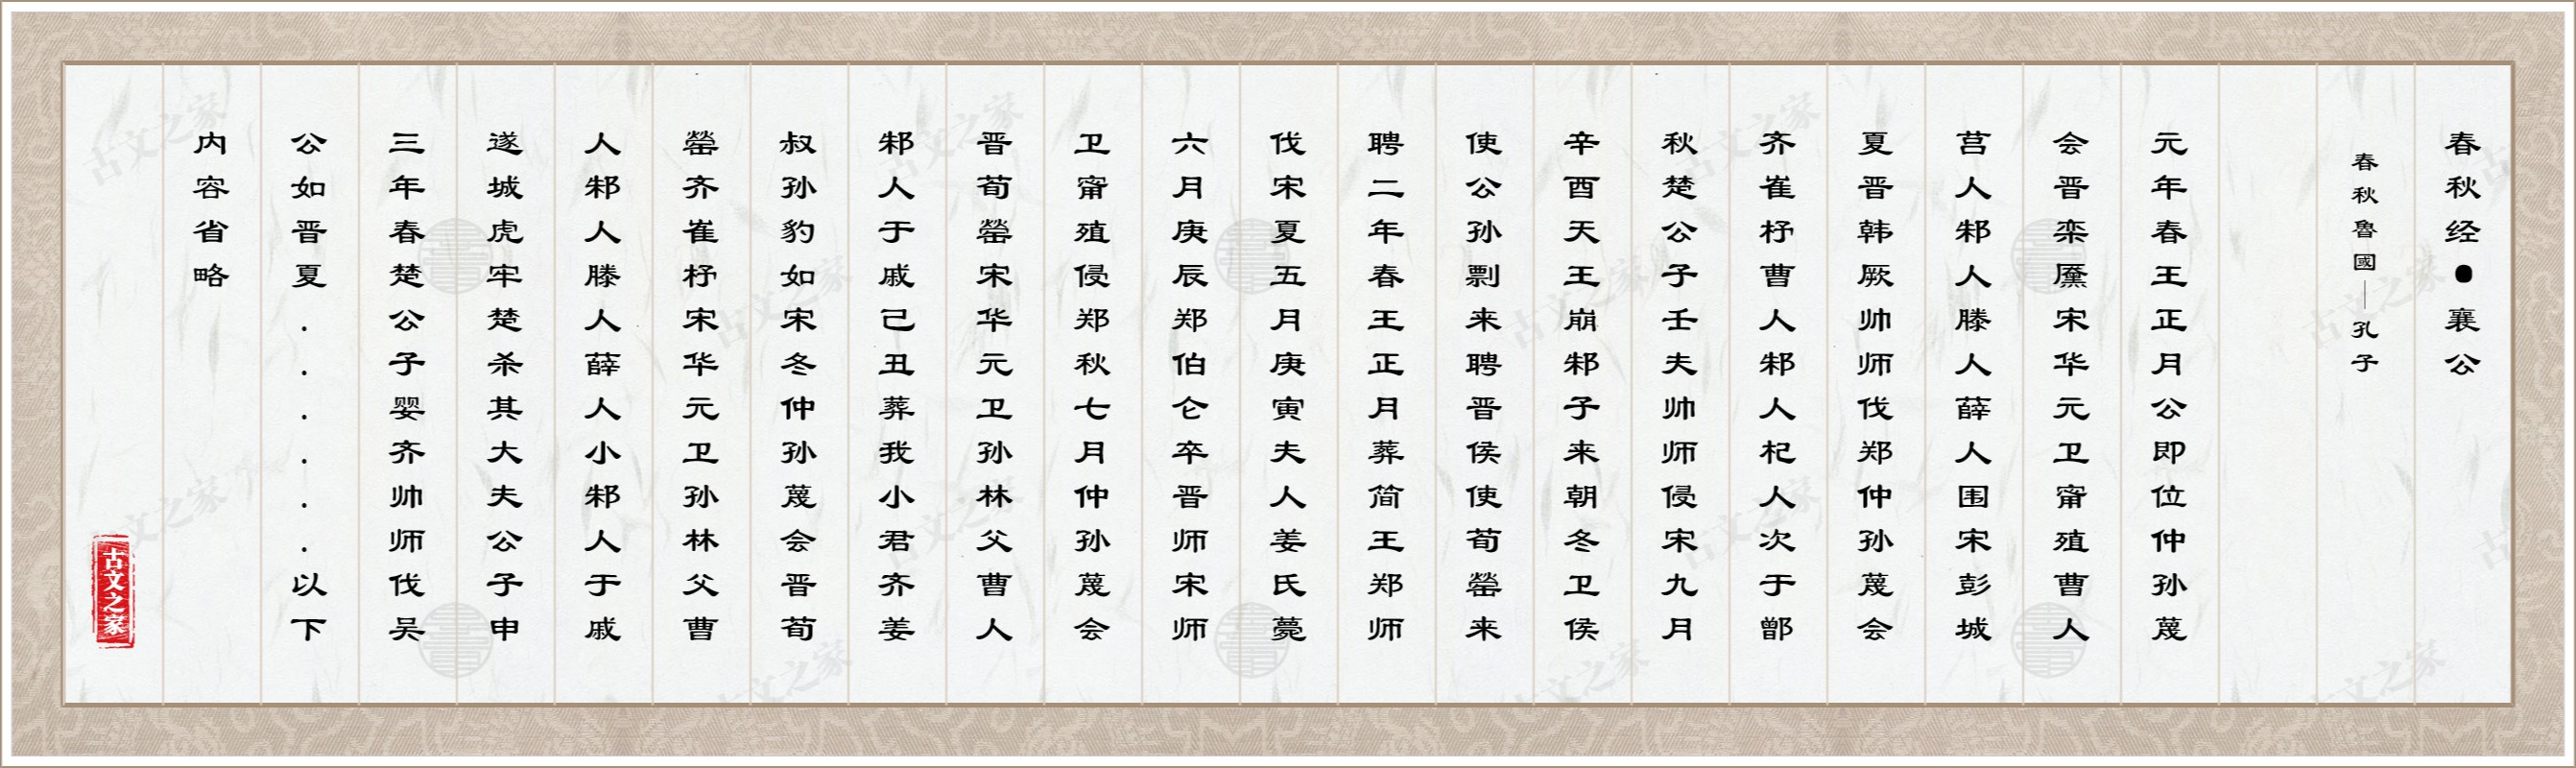 春秋经●襄公
春秋魯國｜孔子
元年春王正月公即位仲孙蔑
会晋栾黡宋华元卫甯殖曹人
莒人邾人滕人薛人围宋彭城
夏晋韩厥帅师伐郑仲孙蔑会
齐崔杼曹人邾人杞人次于鄫
秋楚公子壬夫帅师侵宋九月
辛酉天王崩邾子来朝冬卫侯
使公孙剽来聘晋侯使荀罃来
聘二年春王正月葬简王郑师
伐宋夏五月庚寅夫人姜氏薨
六月庚辰郑伯仑卒晋师宋师
卫甯殖侵郑秋七月仲孙蔑会
晋荀罃宋华元卫孙林父曹人
邾人于戚己丑葬我小君齐姜
叔孙豹如宋冬仲孙蔑会晋荀
罃齐崔杼宋华元卫孙林父曹
人邾人滕人薛人小邾人于戚
遂城虎牢楚杀其大夫公子申
三年春楚公子婴齐帅师伐吴
公如晋夏......以下
内容省略
古文之家